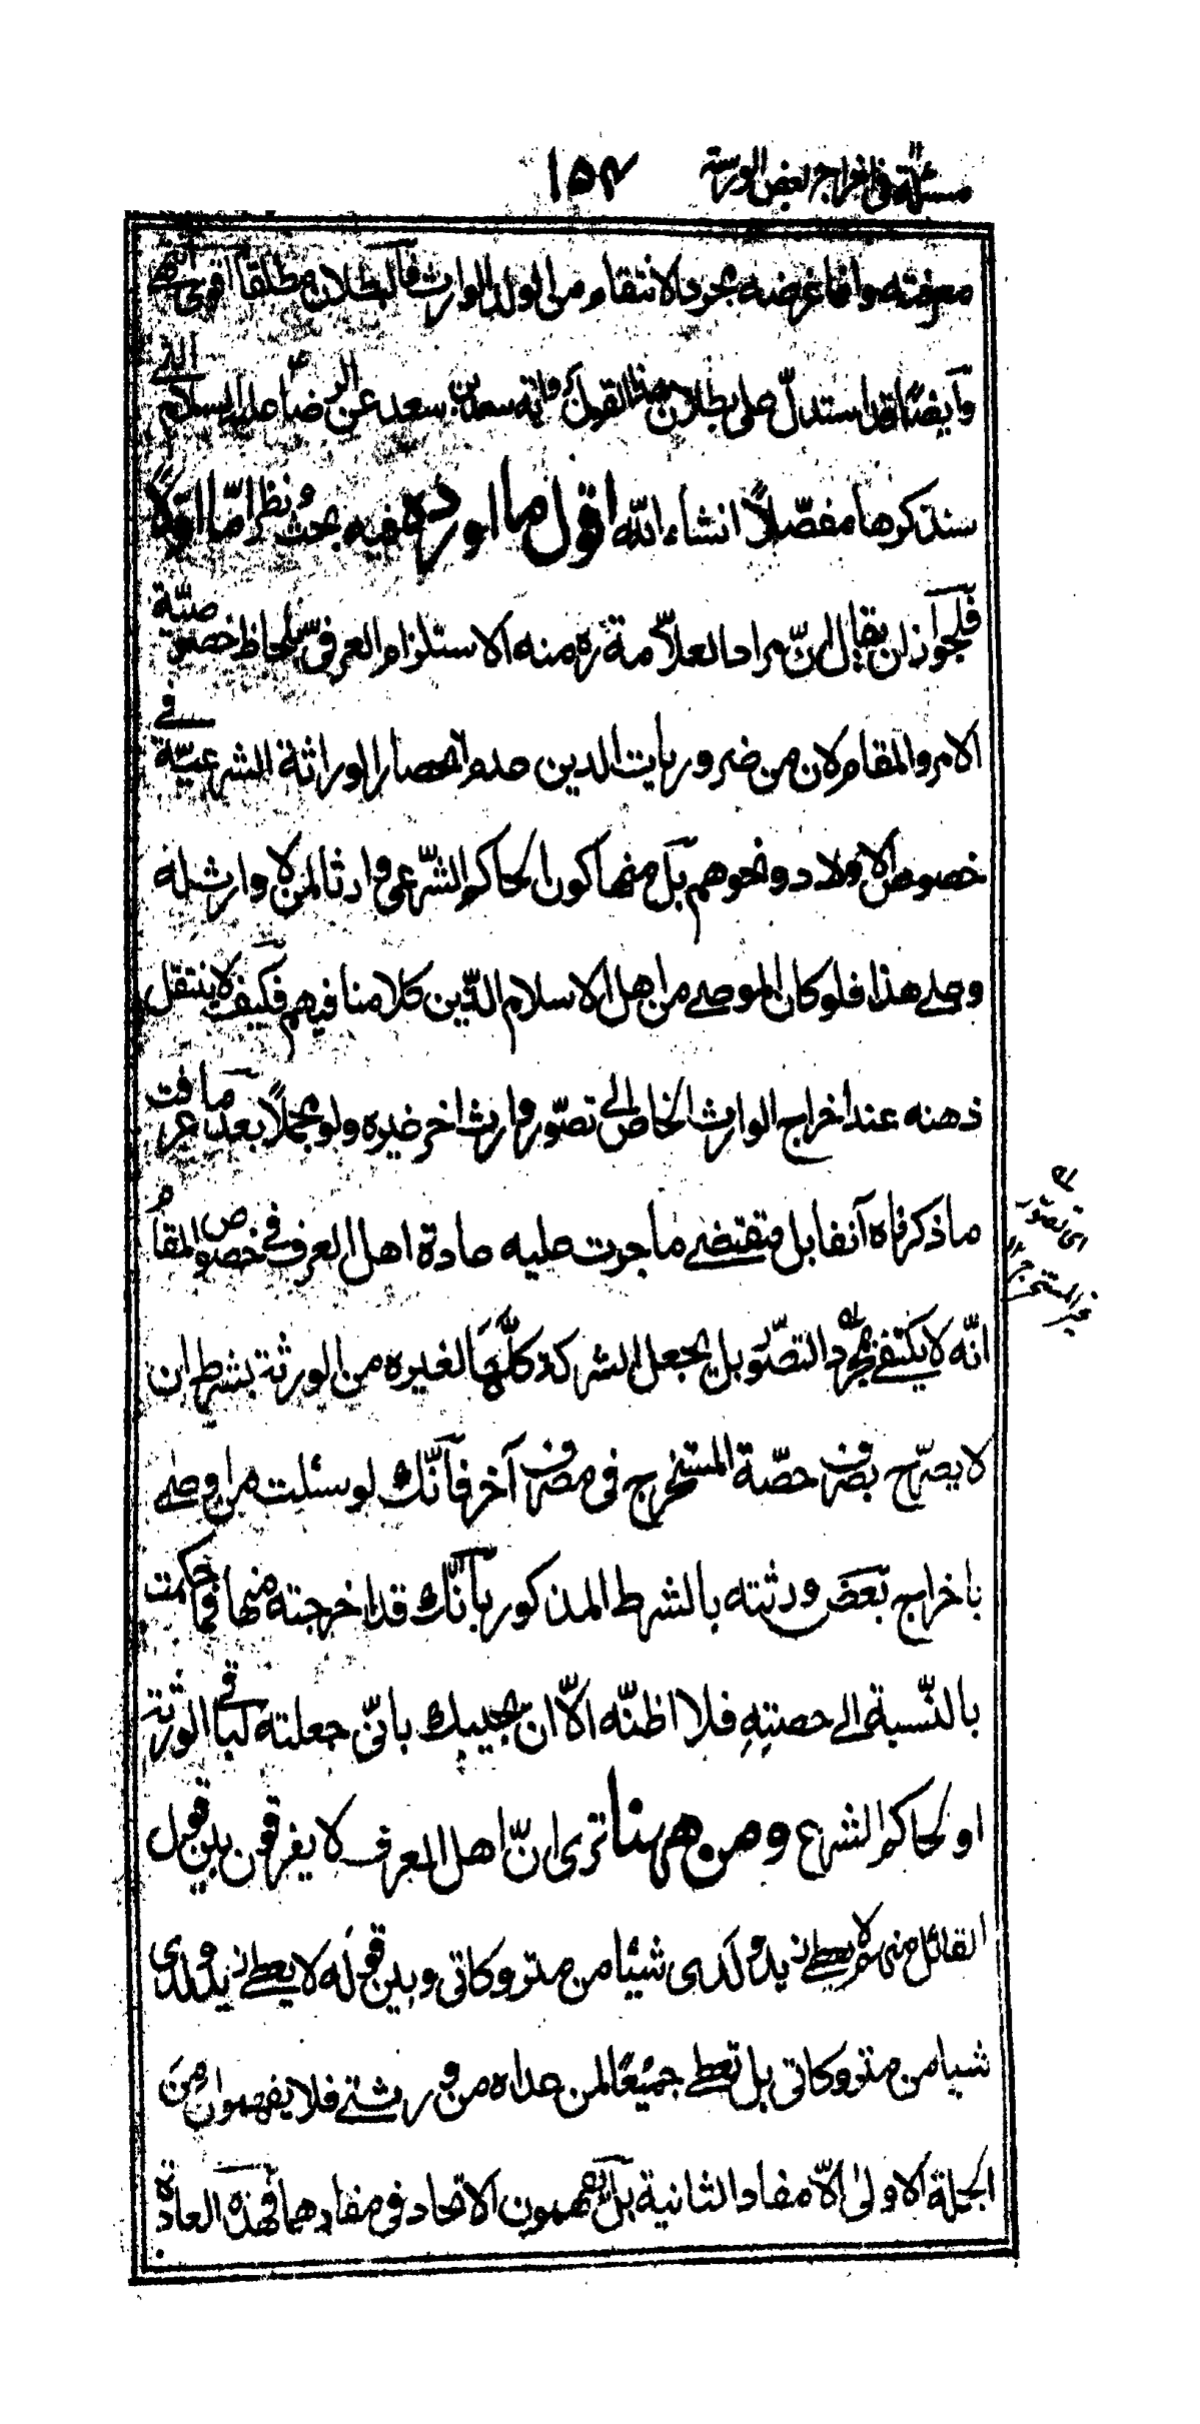 مسئلة فی اخراج بعض الورثة ١٥٤
معرفته وانما غرضه مجرد الانتقام من الولد الوارث فالبطلان مطلقا اقوی انتهی
وایضا قد استدلّ علی بطلان هذا القول بروایة سعد بن سعد عن الرضا علیه السلام التی
سنذکرها مفصّلاً انشاء الله اقول ما اورده ففیه بحث ونظر امّا اوّلاً
فلجواز ان یقال انّ مراد العلاّمة ره منه الاستلزام العرفی بلحاظ خصوصیّة
الامر والمقام لان من ضروریات الدین عدم انحصار الوراثة الشرعیّة فی
خصوص الاولاد ونحوهم بل منها کون الحاکم الشّرعی وارثا لمن لا وارث له
وعلی هذا فلو کان الموصی من اهل الاسلام الذین کلامنا فیهم فکیف لا ینتقل
ذهنه عند اخراج الوارث الخاص الی تصوّر وارث اخر غیره ولو مجملاً بعد ما عرفت
ما ذکرناه آنفا بل مقتضی ما جرت علیه عادة اهل العرف فی خصوص المقام
انّه لا یکتفی بمجرّد التصوّر بل یجعل الترکة کلّها لغیره من الورثة بشرط ان
ای تصوّر غیر المستخرج
لا یصرّح بصرف حصّة المستخرج فی مصرف آخر فانّک لو سئلت من اوصی
باخراج بعض ورثته بالشرط المذکور بانّک قد اخرجته منها فما حکمت
بالنّسبة الی حصته فلا اظنّه الاّ ان یجیبک بانّی جعلته لباقی الورثة
او لحاکم الشرع ومن هیهنا تری انّ اهل العرف لا یفرقون بین قول
القائل منهم لا یعطی زید ولدی شیئا من متروکاتی وبین قوله لا یعطی زید ولدی
شیئا من متروکاتی بل تعطی جمیعًا لمن عداه من ورثتی فلا یفهمون من
الجملة الاولی الاّ مفاد الثانیة بل یفهمون الاتحاد فی مفادهما فهذه العادة